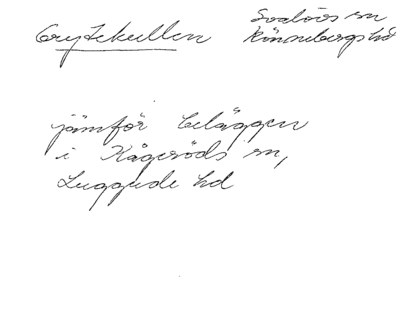 Grytekullen
Svalövs sn
Rönnebergs hd
jämför beläggen
i Kågeröds sn,
Luggude hd